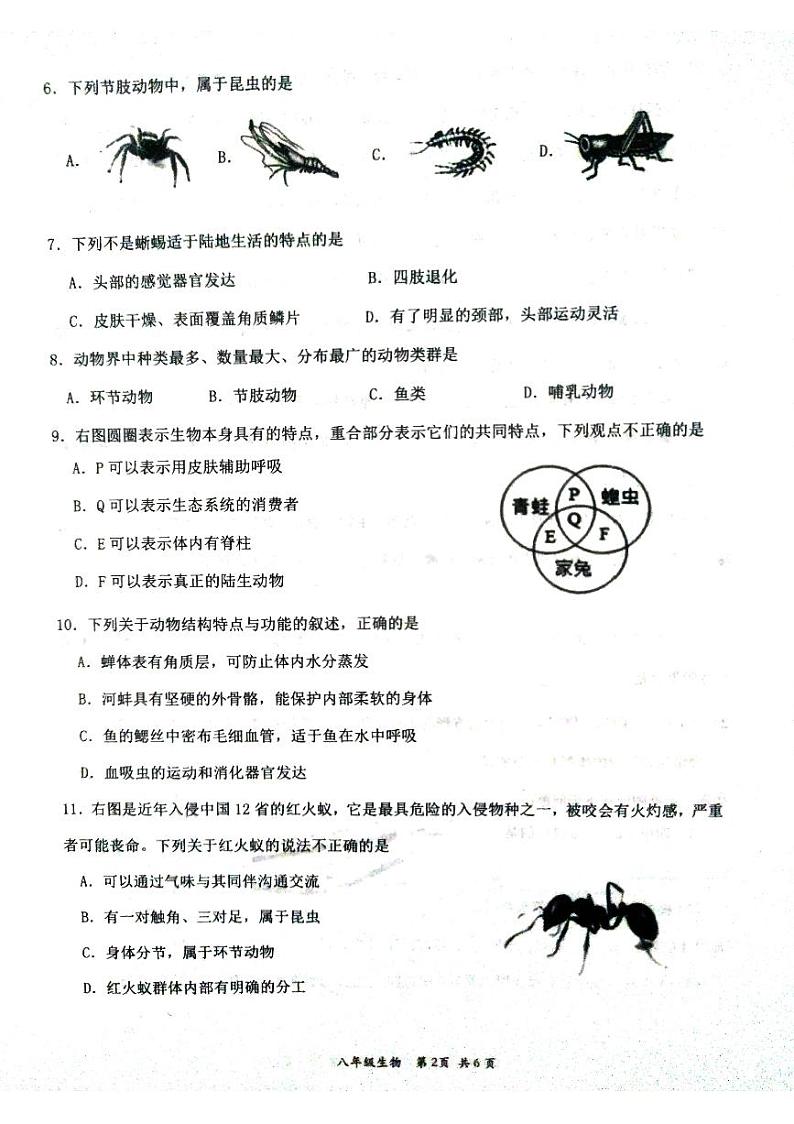 6. 下列节肢动物中，属于昆虫的是
A. B. C. D.
7. 下列不是蜥蜴适于陆地生活的特点的是
A. 头部的感觉器官发达 B. 四肢退化
C. 皮肤干燥、表面覆盖角质鳞片 D. 有了明显的颈部，头部运动灵活
8. 动物界中种类最多、数量最大、分布最广的动物类群是
A. 环节动物 B. 节肢动物 C. 鱼类 D. 哺乳动物
9. 右图圆圈表示生物本身具有的特点，重合部分表示它们的共同特点，下列观点不正确的是
A. P可以表示用皮肤辅助呼吸
B. Q可以表示生态系统的消费者
C. E可以表示体内有脊柱
D. F可以表示真正的陆生动物
青蛙 P 蝗虫
Q
E F
家兔
10. 下列关于动物结构特点与功能的叙述，正确的是
A. 蝉体表有角质层，可防止体内水分蒸发
B. 河蚌具有坚硬的外骨骼，能保护内部柔软的身体
C. 鱼的鳃丝中密布毛细血管，适于鱼在水中呼吸
D. 血吸虫的运动和消化器官发达
11. 右图是近年入侵中国12省的红火蚁，它是最具危险的入侵物种之一，被咬会有火灼感，严重
者可能丧命。下列关于红火蚁的说法不正确的是
A. 可以通过气味与其同伴沟通交流
B. 有一对触角、三对足，属于昆虫
C. 身体分节，属于环节动物
D. 红火蚁群体内部有明确的分工
八年级生物 第2页 共6页